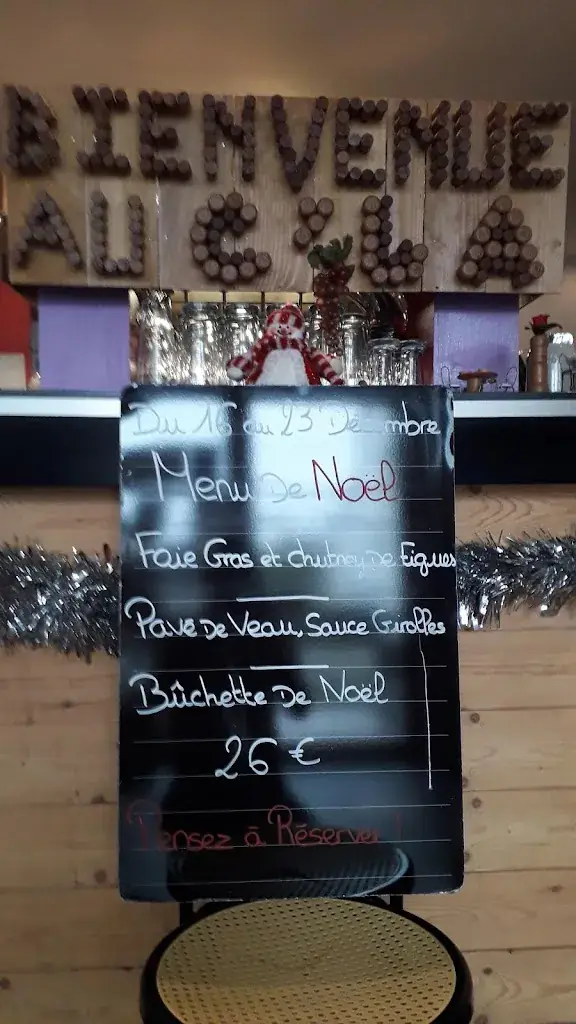 BIENVENUE
AU C'LA
Du 16 au 23 Décembre
Menu De Noël
Foie Gras et chutney De Figues
Pavé De Veau, Sauce Girolles
Bûchette De Noël
26 €
Pensez à Réserver !